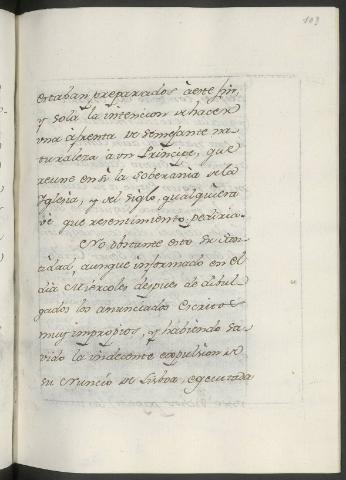 103
estaban preparados à este fin,
y sola la intencion de hacer
una afrenta de semejante na-
turaleza a un Principe, que
reune en si la soberania de la
Iglesia, y del siglo, qualquiera
vè que resentimiento pediria.
No obstante esto Su San-
tidad, aunque informado en el
dia Miercoles despues de dibul-
gados los anunciados Escritos
muy impropios, y habiendo sa-
vido la indecente expulsion de
su Nuncio de Lisboa, egecutada